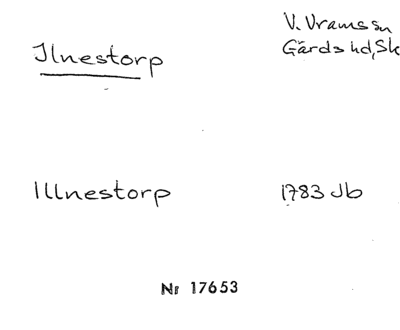 Ilnestorp
V. Vrams sn
Gärds hd, Sk
Illnestorp
1783 Jb
Nr 17653